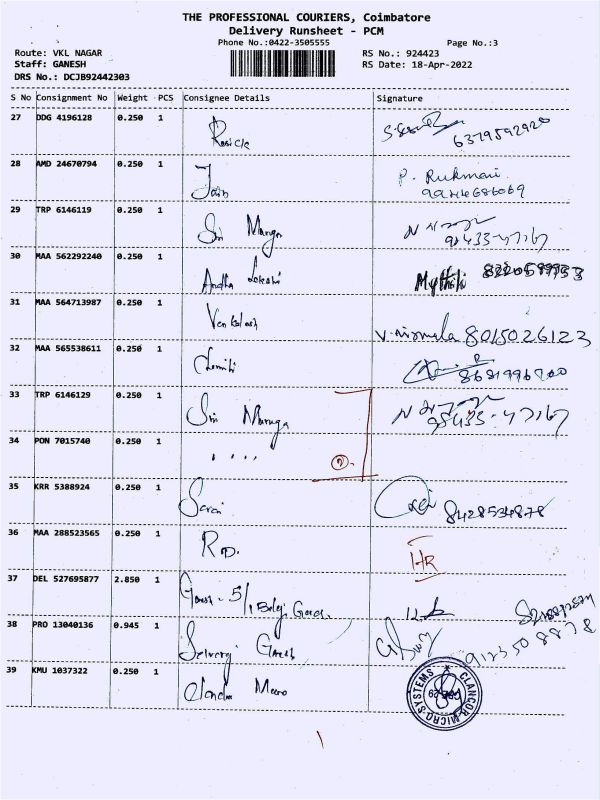 THE PROFESSIONAL COURIERS, Coimbatore
Delivery Runsheet - PCM
Phone No.:0422-3505555
Page No.:3
Route: VKL NAGAR
RS No.: 924423
Staff: GANESH
RS Date: 18-Apr-2022
DRS No.: DCJB92442303
S No Consignment No Weight PCS Consignee Details Signature
27 DDG 4196128 0.250 1
6379592920
28 AMD 24670794 0.250 1 Join P. Rukmani
9944686069
29 TRP 6146119 0.250 1 Sri Muruga
98433-47167
30 MAA 562292240 0.250 1 Andha Mythili
31 MAA 564713987 0.250 1 Venkatesh V. Nirmala 8015026123
32 MAA 565538611 0.250 1
33 TRP 6146129 0.250 1 Sri Muruga
98433-47167
34 PON 7015740 0.250 1 " " "
35 KRR 5388924 0.250 1 8428534878
36 MAA 288523565 0.250 1 R.D. HR
37 DEL 527695877 2.850 1 5/1 Balaji Garden
38 PRO 13040136 0.945 1 Selvaraj Ganesh
9123508878
39 KMU 1037322 0.250 1
CLANCOR MICRO SYSTEMS